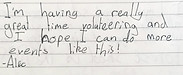 I'm having a really
great time volunteering and
I hope I can do more
events like this!